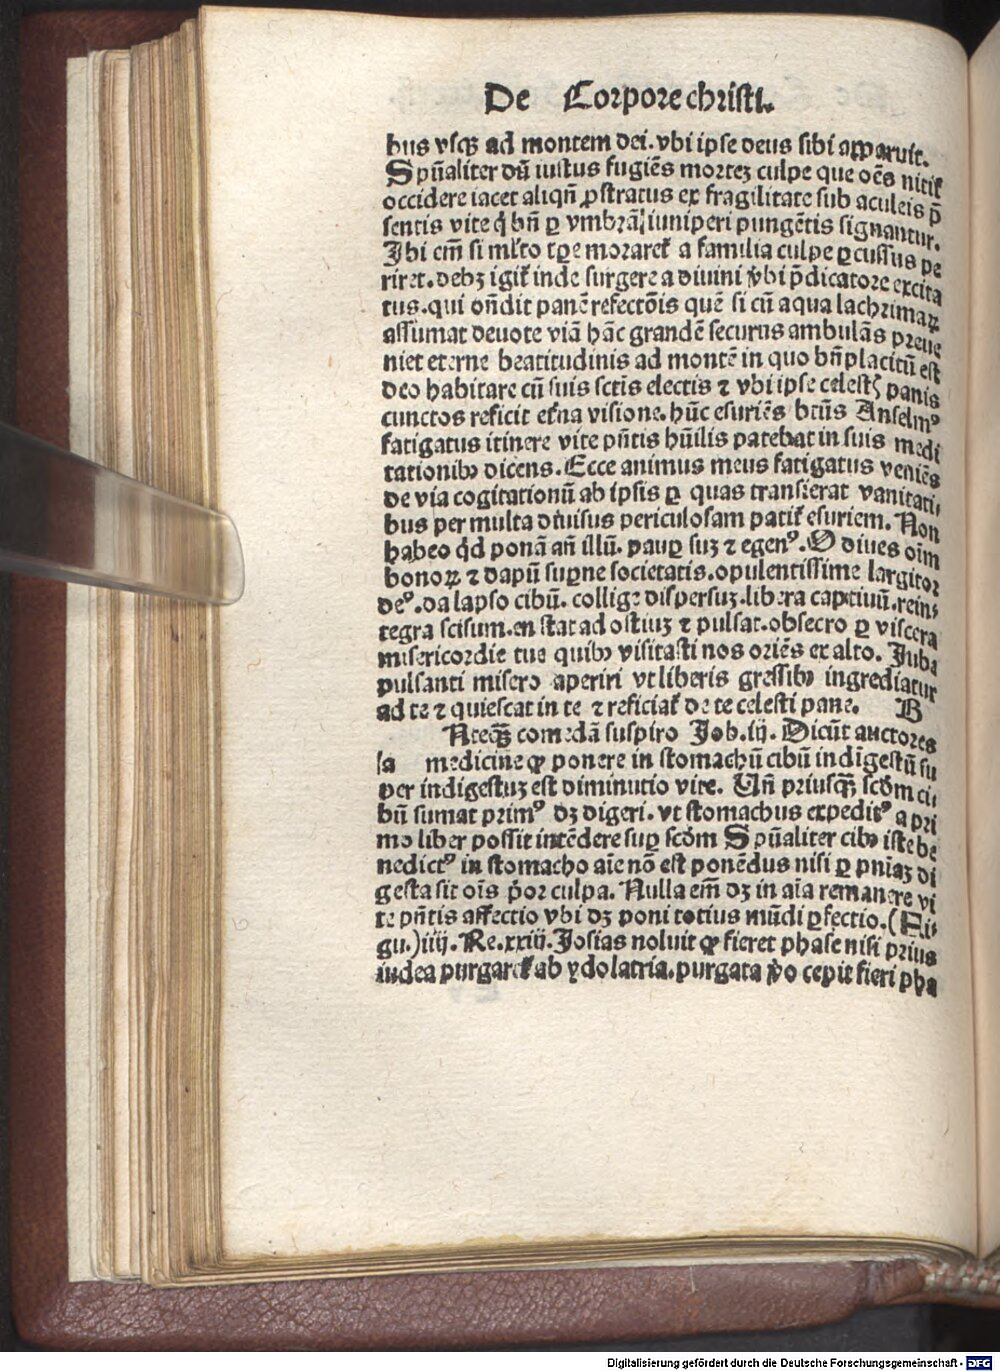 De Corpore christi.
bus vsqꝫ ad montem dei. vbi ipse deus sibi apparuit.
Spūaliter dū iustus fugiēs morteꝫ culpe que oēs nitit̉
occidere iacet aliqn̄ ꝓstratus ex fragilitate sub aculeis p̄
sentis vite q̇ bn̄ ꝑ vmbrā iuniperi pungētis signantur.
Ibi em̄ si ml̓to tꝑe moraret̉ a familia culpe ꝑcussus pe
riret. debꝫ igit̉ inde surgere a diuini v̓bi p̄dicatore excita
tus. qui on̄dit panē refectōis quē si cū aqua lachrimaꝝ
assumat deuote viā hāc grandē securus ambulās preue
niet eterne beatitudinis ad montē in quo bn̄placitū est
deo habitare cū suis sctīs electis ⁊ vbi ipse celestꝭ panis
cunctos reficit et̓na visione. hūc esuriēs btūs Anselmꝰ
fatigatus itinere vite pn̄tis hūilis patebat in suis medi
tationibꝫ dicens. Ecce animus meus fatigatus veniēs
de via cogitationū ab ipsis ꝑ quas transierat vanitati,
bus per multa diuisus periculosam patit̉ esuriem. Non
habeo qd̓ ponā an̄ illū. pauꝑ suꝫ ⁊ egenꝰ. O diues oīm
bonoꝝ ⁊ dapū suꝑne societatis. opulentissime largitor
deꝰ. da lapso cibū. collige dispersuꝫ. libera captiuū. rein,
tegra scisum. en stat ad ostiuꝫ ⁊ pulsat. obsecro ꝑ viscera
misericordie tue quibꝫ visitasti nos oriēs ex alto. Iuba
pulsanti misero aperiri vt liberis gressibꝫ ingrediatur
ad te ⁊ quiescat in te ⁊ reficiat̉ de te celesti pane. B
Nteqꝫ comedā suspiro Job. iij. Dicūt auctores
[a medicine ꝙ ponere in stomachū cibū indigestū su
per indigestuꝫ est diminutio vite. Un̄ priusqꝫ scd̓m ci,
bū sumat primꝰ dꝫ digeri. vt stomachus expeditꝰ a pri
mo liber possit intēdere suꝑ scd̓m Spūaliter cibꝫ iste be
nedictꝰ in stomacho aīe nō est ponēdus nisi ꝑ pniaꝫ di
gesta sit oīs p̓or culpa. Nulla em̄ dꝫ in aīa remanere vi
te pn̄tis affectio vbi dꝫ poni totius mūdi ꝑfectio. (Fi,
gu.) iiij. Re. xxiij. Josias noluit ꝙ fieret phase nisi prius
iudea purgaret̉ ab ydolatria. purgata v̓o cepit fieri pha
Digitalisierung gefördert durch die Deutsche Forschungsgemeinschaft - DFG